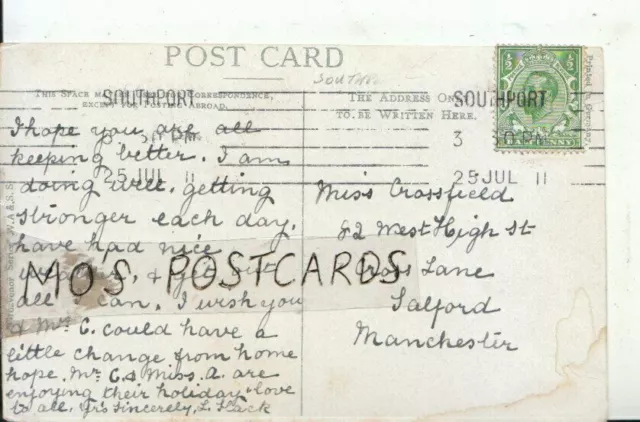 POST CARD
SOUTH
THIS SPACE MAY BE USED FOR CORRESPONDENCE,
EXCEPT FOR POSTING ABROAD.
THE ADDRESS ONLY
TO BE WRITTEN HERE.
SOUTHPORT
PM
25 JUL 11
SOUTHPORT
3 0 PM
25 JUL 11
Printed in Germany
I hope you are all
keeping better. I am
doing well. getting
stronger each day.
have had nice
weather, & get out
all I can. I wish you
& Mr C. could have a
little change from home
hope. Mr C. & Miss. A. are
enjoying their holiday. love
to all. Yrs Sincerely, L.
Miss Crossfield
82 West High St
Cross Lane
Salford
Manchester
MOS POSTCARDS